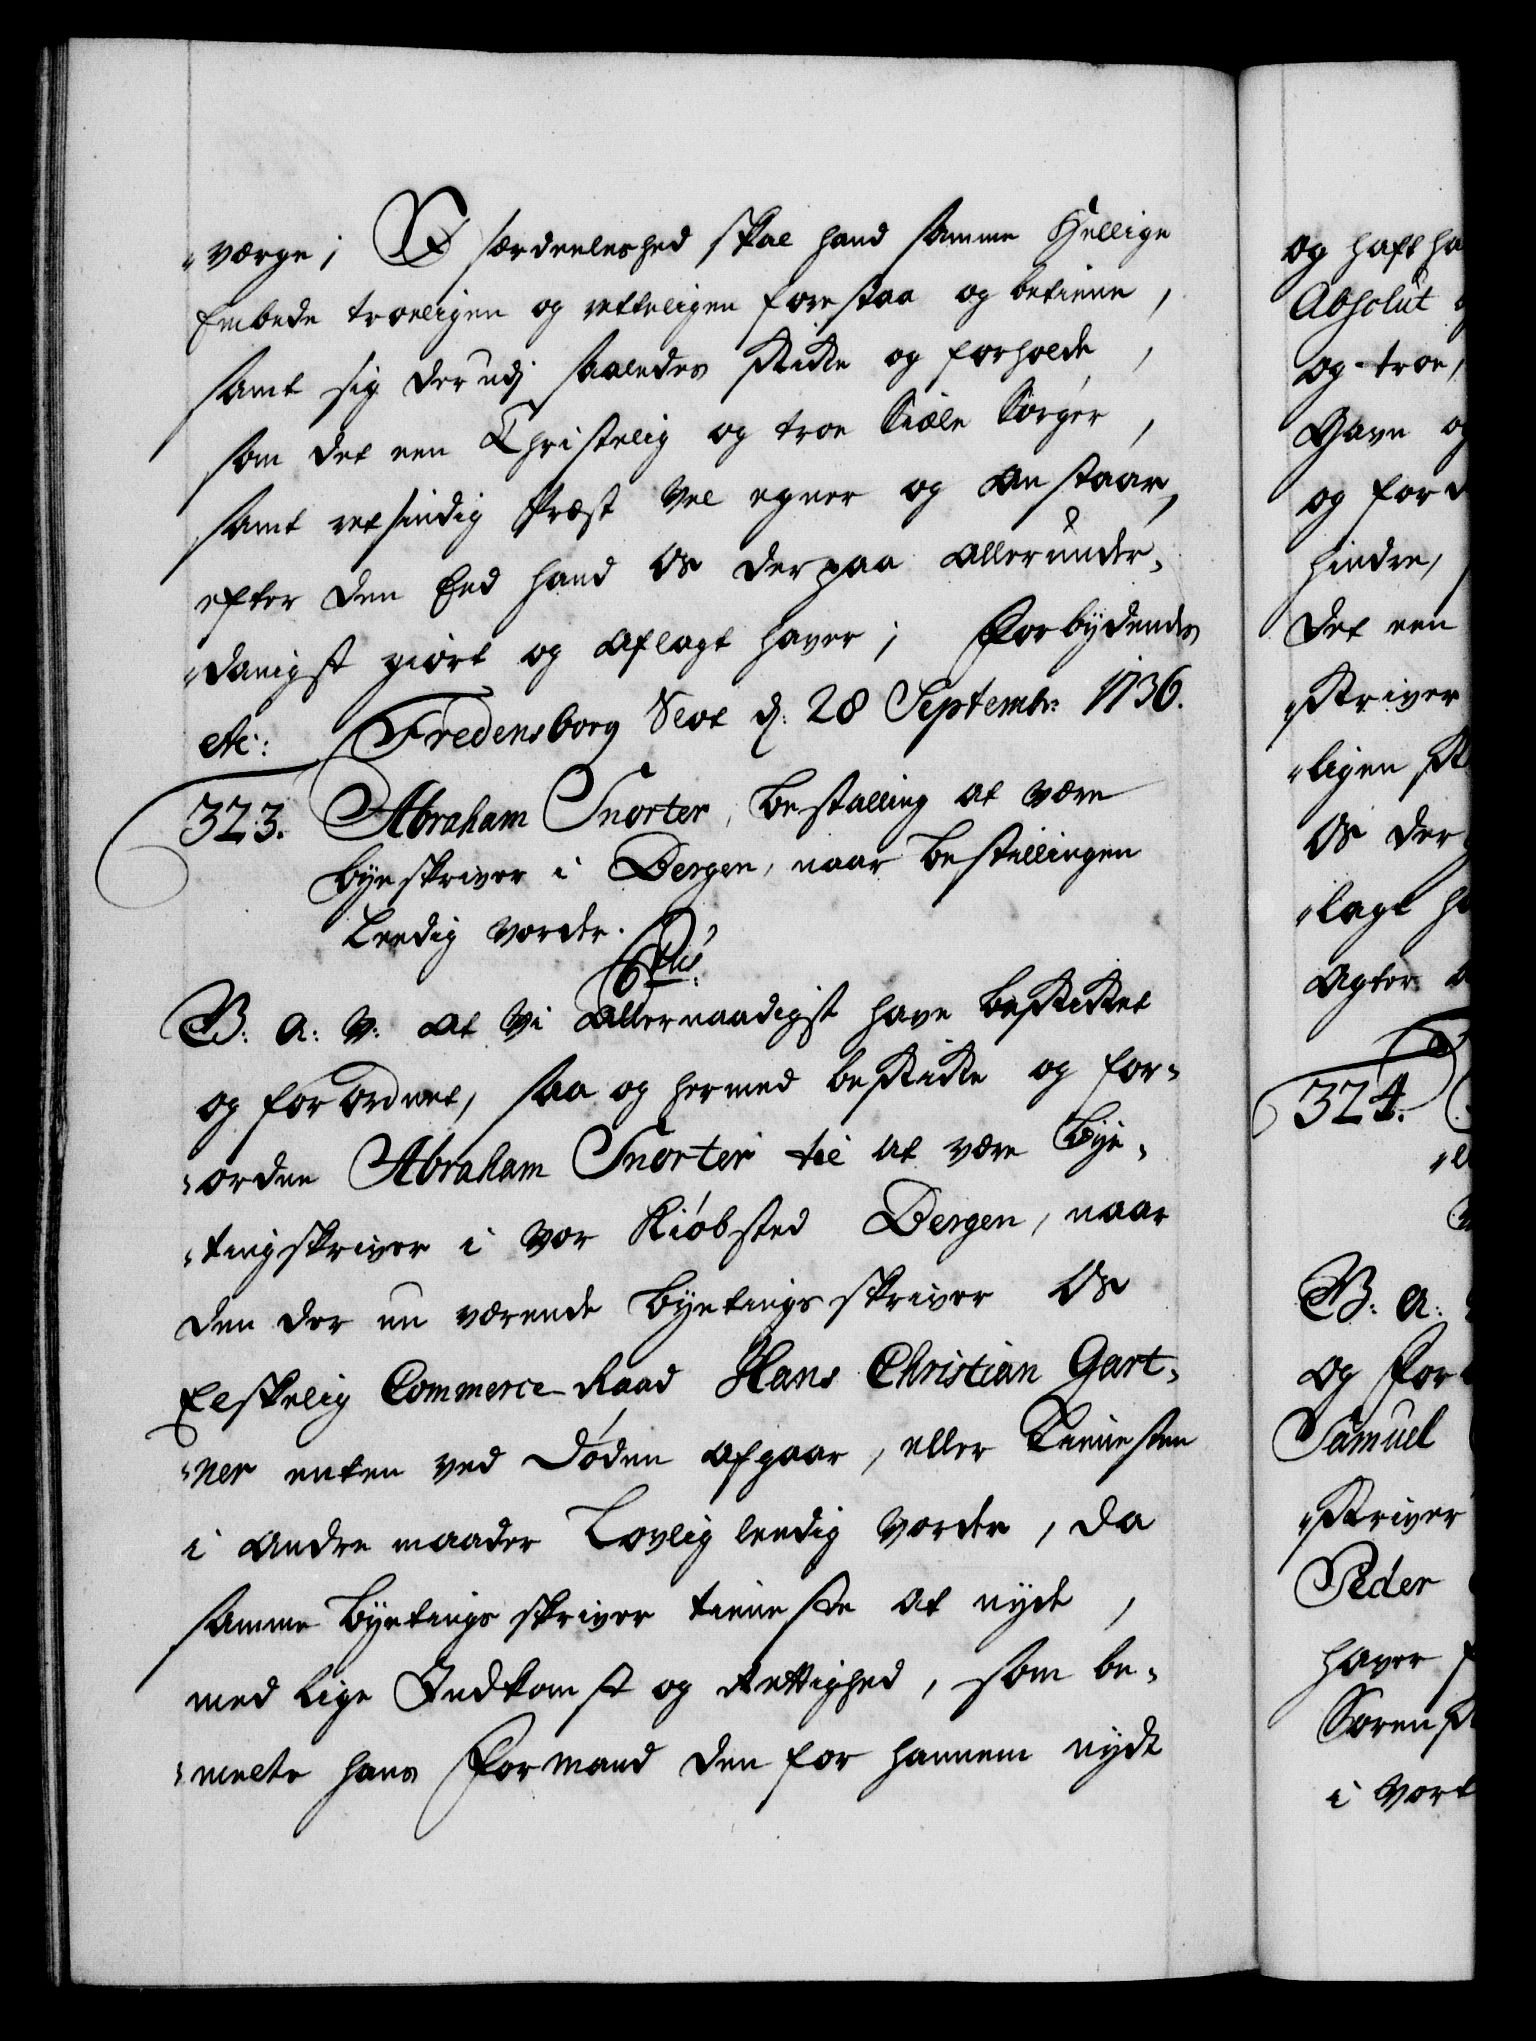 værge; I særdeeleshed skal hand samme Hellige
Embede troeligen og retteligen forestaa og betiene,
samt sig derudj saaledes skikke og forholde,
som det een Christelig og troe Siæle Sörger,
samt retsindig Præst vel egner og anstaar,
efter den Eed hand Os derpaa allerunder-
danigst giort og aflagt haver; Forbydendes
etc: Fredensborg Slot d: 28 Septembr: 1736.
323. Abraham Snorter, bestalling at være
byeskriver i Bergen, naar bestillingen
Leedig vorder.
G: A: V: at Vi allernaadigst have beskikket
og forordnet, saa og hermed beskikke og for-
ordne Abraham Snorter til at være bye-
tingskriver i vor Kiöbsted Bergen, naar
den der nu værende byetingsskriver Os
Elskelig Commerce-Raad Hans Christian Gart-
ner enten ved döden afgaar, eller tienesten
i andre maader Lovlig leedig vorder, da
samme byetingsskriver tieneste at nyde,
med lige Indkomst og Rettighed, som be-
melte hans Formand den for hannem nydt
og haft ha
Absolut
og troe,
Gavn og
og for
hindre,
det een
skriver
ligen sk
Os der
lagt h
Agter
324.
G: A:
og for
Samuel
skriver
Peder
haver
Soren
i vort